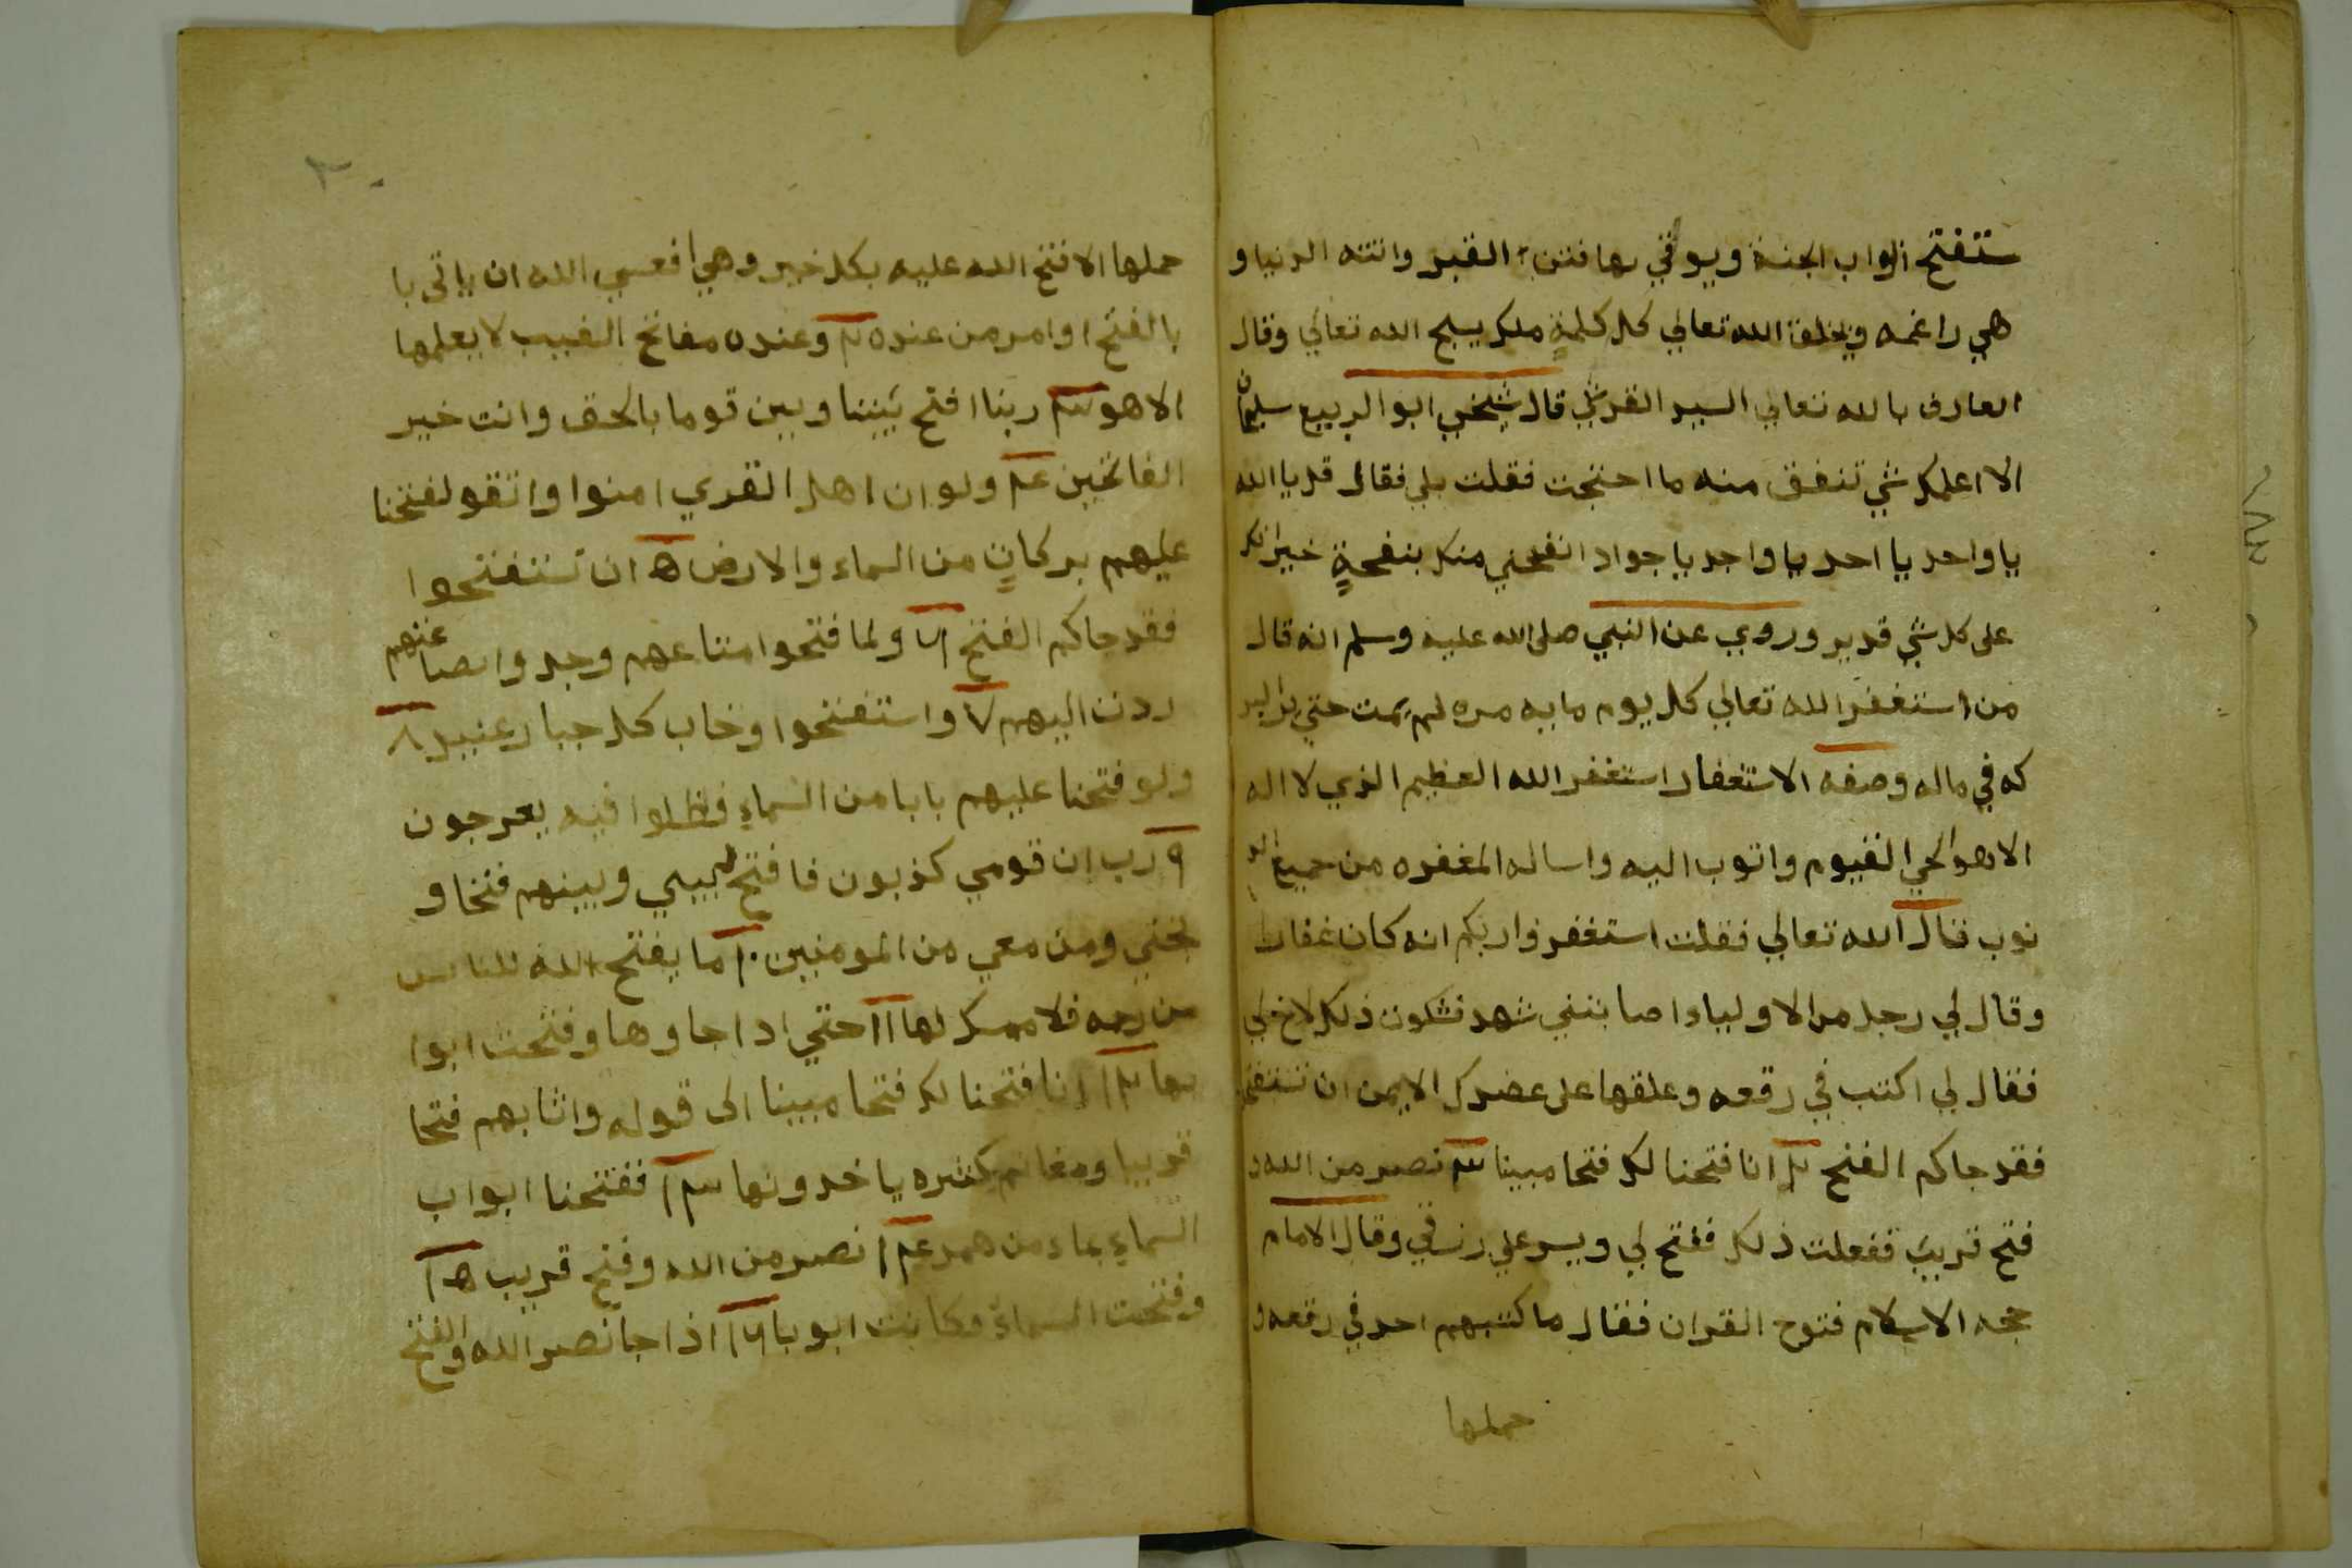 ستفتح ابواب الجنة ويوقي بها فتنة القبر وانته الدنيا و
هي راغمه ويخلق الله تعالي كل كلمةٍ ملك يسبح الله تعالي وقال
العارف بالله تعالي السيد القرشي قال شيخي ابو الربيع سليمان
الا اعلمك شي تنفق منه ما احتجت فقلت بلي فقال قل يا الله
يا واحد يا احد يا واجد يا جواد انفحني منك بنفحةٍ خير انك
علي كل شي قدير وروي عن النبي صلى الله عليه وسلم انه قال
من استغفر الله تعالي كل يوم مايه مره لم يمت حتي البر
كه في ماله وصفه الاستغفار استغفر الله العظيم الذي لا اله
الا هو الحي القيوم واتوب اليه واساله المغفره من جميع الذ
نوب قال الله تعالي فقلت استغفروا ربكم انه كان غفارا
وقال لي رجل من الاولياء اصابتني شهد فشكوت ذلك لاخ لي
فقال لي اكتب في رقعه وعلقها علي عضدك الايمن ان تستفتحو
فقد جاكم الفتح ٢ انا فتحنا لك فتحا مبينا ٣ نصر من الله و
فتح قريب ففعلت ذلك ففتح لي ويسر علي رزقي وقال الامام
حجه الاسلام فتوح القران فقال ما كتبهم احد في رقعه و
حملها
٢٠
حملها الا فتح الله عليه بكل خير وهي ا فعسي الله ان ياتي با
بالفتح او امر من عنده ٢ وعنده مفاتح الغيب لا يعلمها
الا هو ٣ ربنا افتح بيننا وبين قوما بالحق وانت خير
الفاتحين ٤ ولو ان اهل القري امنوا واتقو لفتحنا
عليهم بركاتٍ من السماء والارض ٥ ان تستفتحوا
فقد جاكم الفتح ٦ ولما فتحوا متاعهم وجدوا بضاعتهم
ردت اليهم ٧ واستفتحوا وخاب كل جبار عنيد ٨
ولو فتحنا عليهم بابا من السماء فظلوا فيه يعرجون
٩ رب ان قومي كذبون فافتح بيني وبينهم فتحا و
نجني ومن معي من المومنين ١٠ ما يفتح الله للناس
من رحمه فلا ممسك لها ١١ حتي اذا جاوها وفتحت ابوا
بها ١٢ انا فتحنا لك فتحا مبينا الى قوله واثابهم فتحا
قريبا ومغانم كثيره ياخذونها ١٣ ففتحنا ابواب
السماءِ بماء منهمر ١٤ نصر من الله وفتح قريب ١٥
وفتحت السماء فكانت ابوبا ١٦ اذا جا نصر الله والفتح